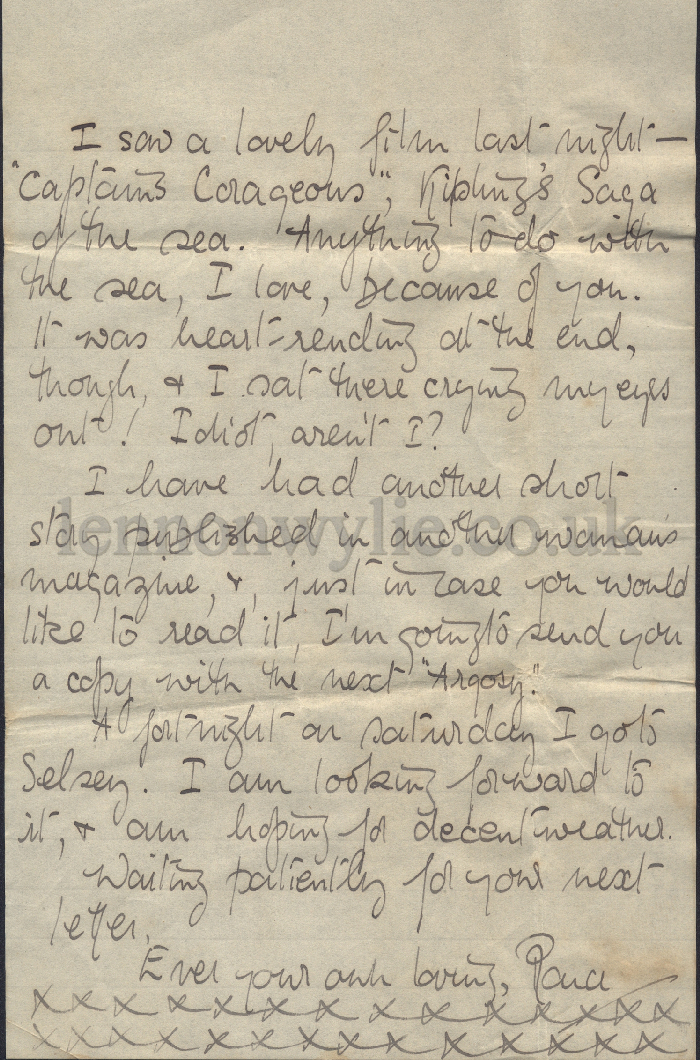 I saw a lovely film last night —
"Captains Corageous", Kipling's Saga
of the sea. Anything to do with
the sea, I love, because of you.
It was heart-rending at the end,
though, & I sat there crying my eyes
out! Idiot, aren't I?
I have had another short
story published in another woman's
magazine, &, just in case you would
like to read it, I'm going to send you
a copy with the next "Argosy."
A fortnight on saturday I go to
Selsey. I am looking forward to
it, & am hoping for decent weather.
Waiting patiently for your next
letter.
Ever your own loving,
x x x x x x x x x x x x x x x
x x x x x x x x x x x x x x x
lennonwylie.co.uk